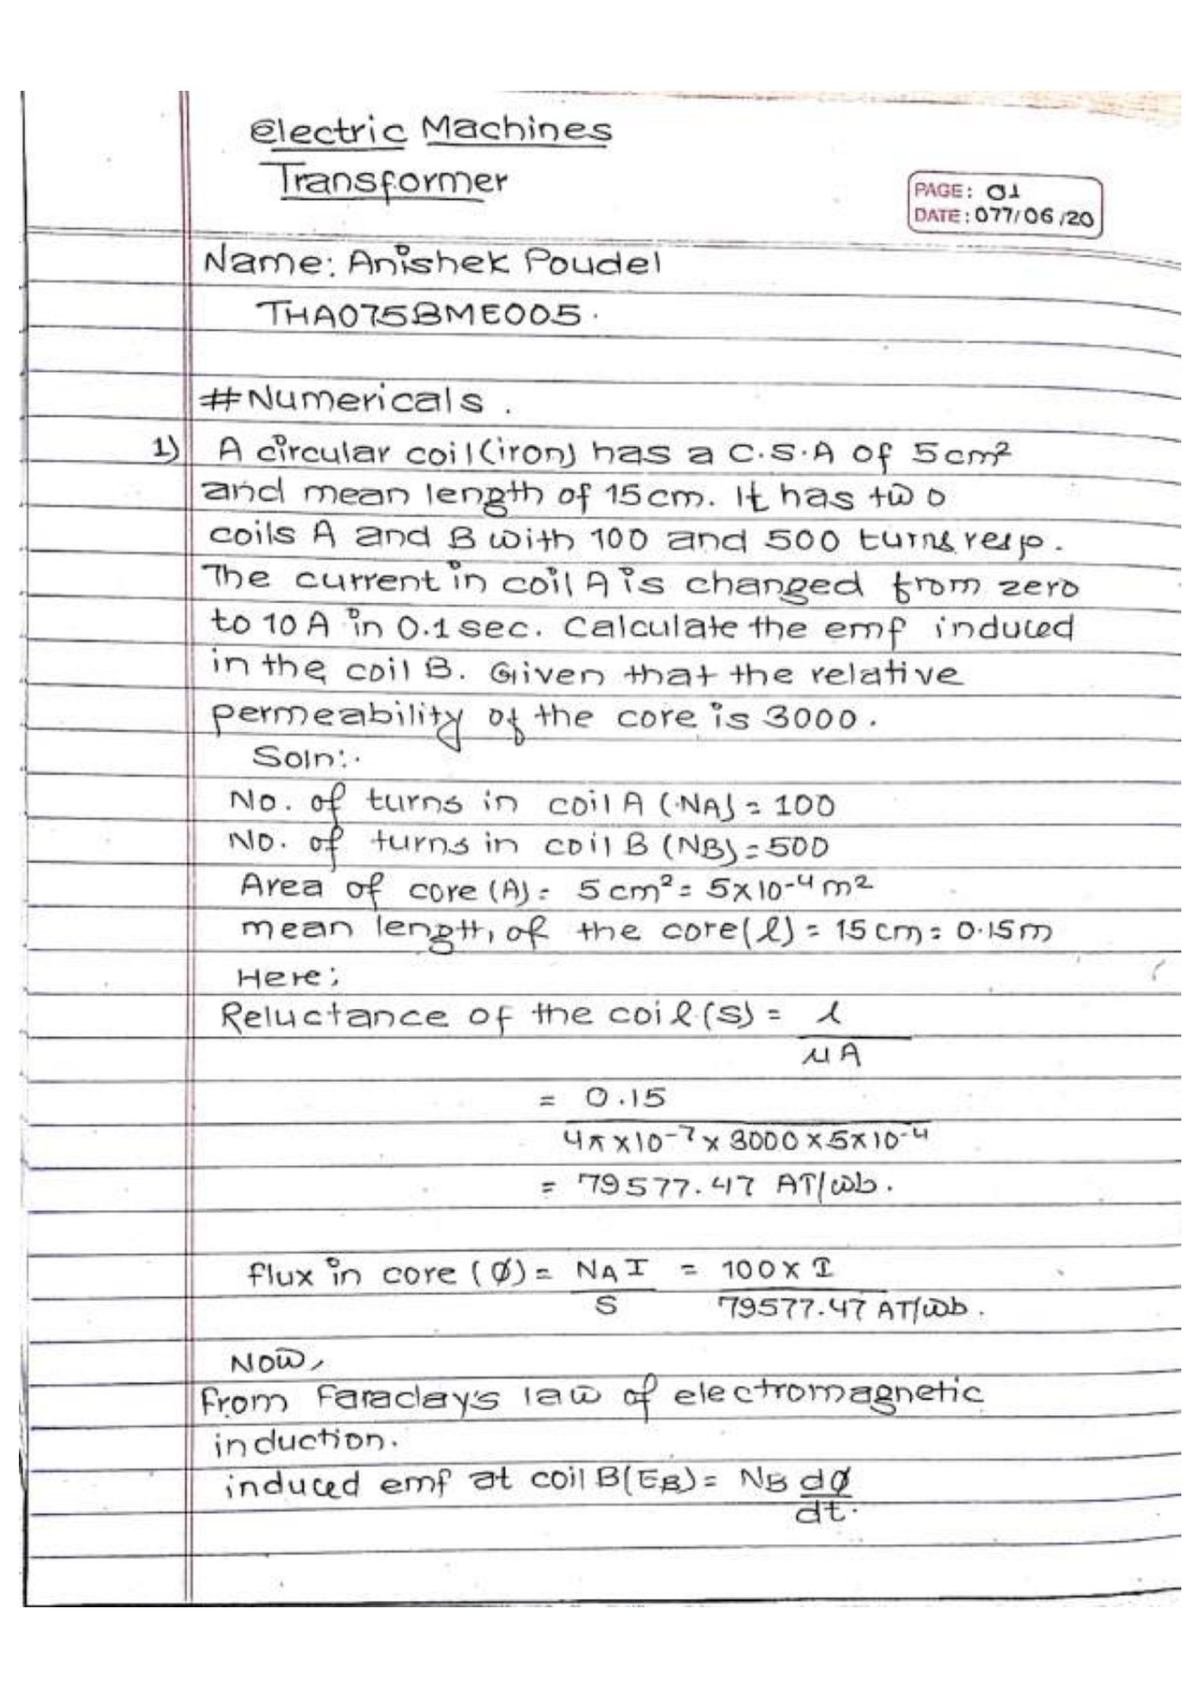 Electric Machines
Transformer
PAGE: 01
DATE: 077/06/20
Name: Anishek Poudel
THA075BME005.
#Numericals.
1) A circular coil(iron) has a C.S.A of 5cm²
and mean length of 15cm. It has two
coils A and B with 100 and 500 turns resp.
The current in coil A is changed from zero
to 10 A in 0.1 sec. Calculate the emf induced
in the coil B. Given that the relative
permeability of the core is 3000.
Soln:.
No. of turns in coil A (NA) = 100
No. of turns in coil B (NB) = 500
Area of core (A) = 5 cm² = 5x10⁻⁴ m²
mean length of the core(l) = 15 cm = 0.15m
Here;
Reluctance of the coil (S) = l
μA
= 0.15
4π x10⁻⁷ x 3000 x 5x10⁻⁴
= 79577.47 AT/wb.
flux in core (Ø) = NA I = 100 x I
S 79577.47 AT/wb.
Now,
from Faraday's law of electromagnetic
induction.
induced emf at coil B(EB) = NB dØ
dt.